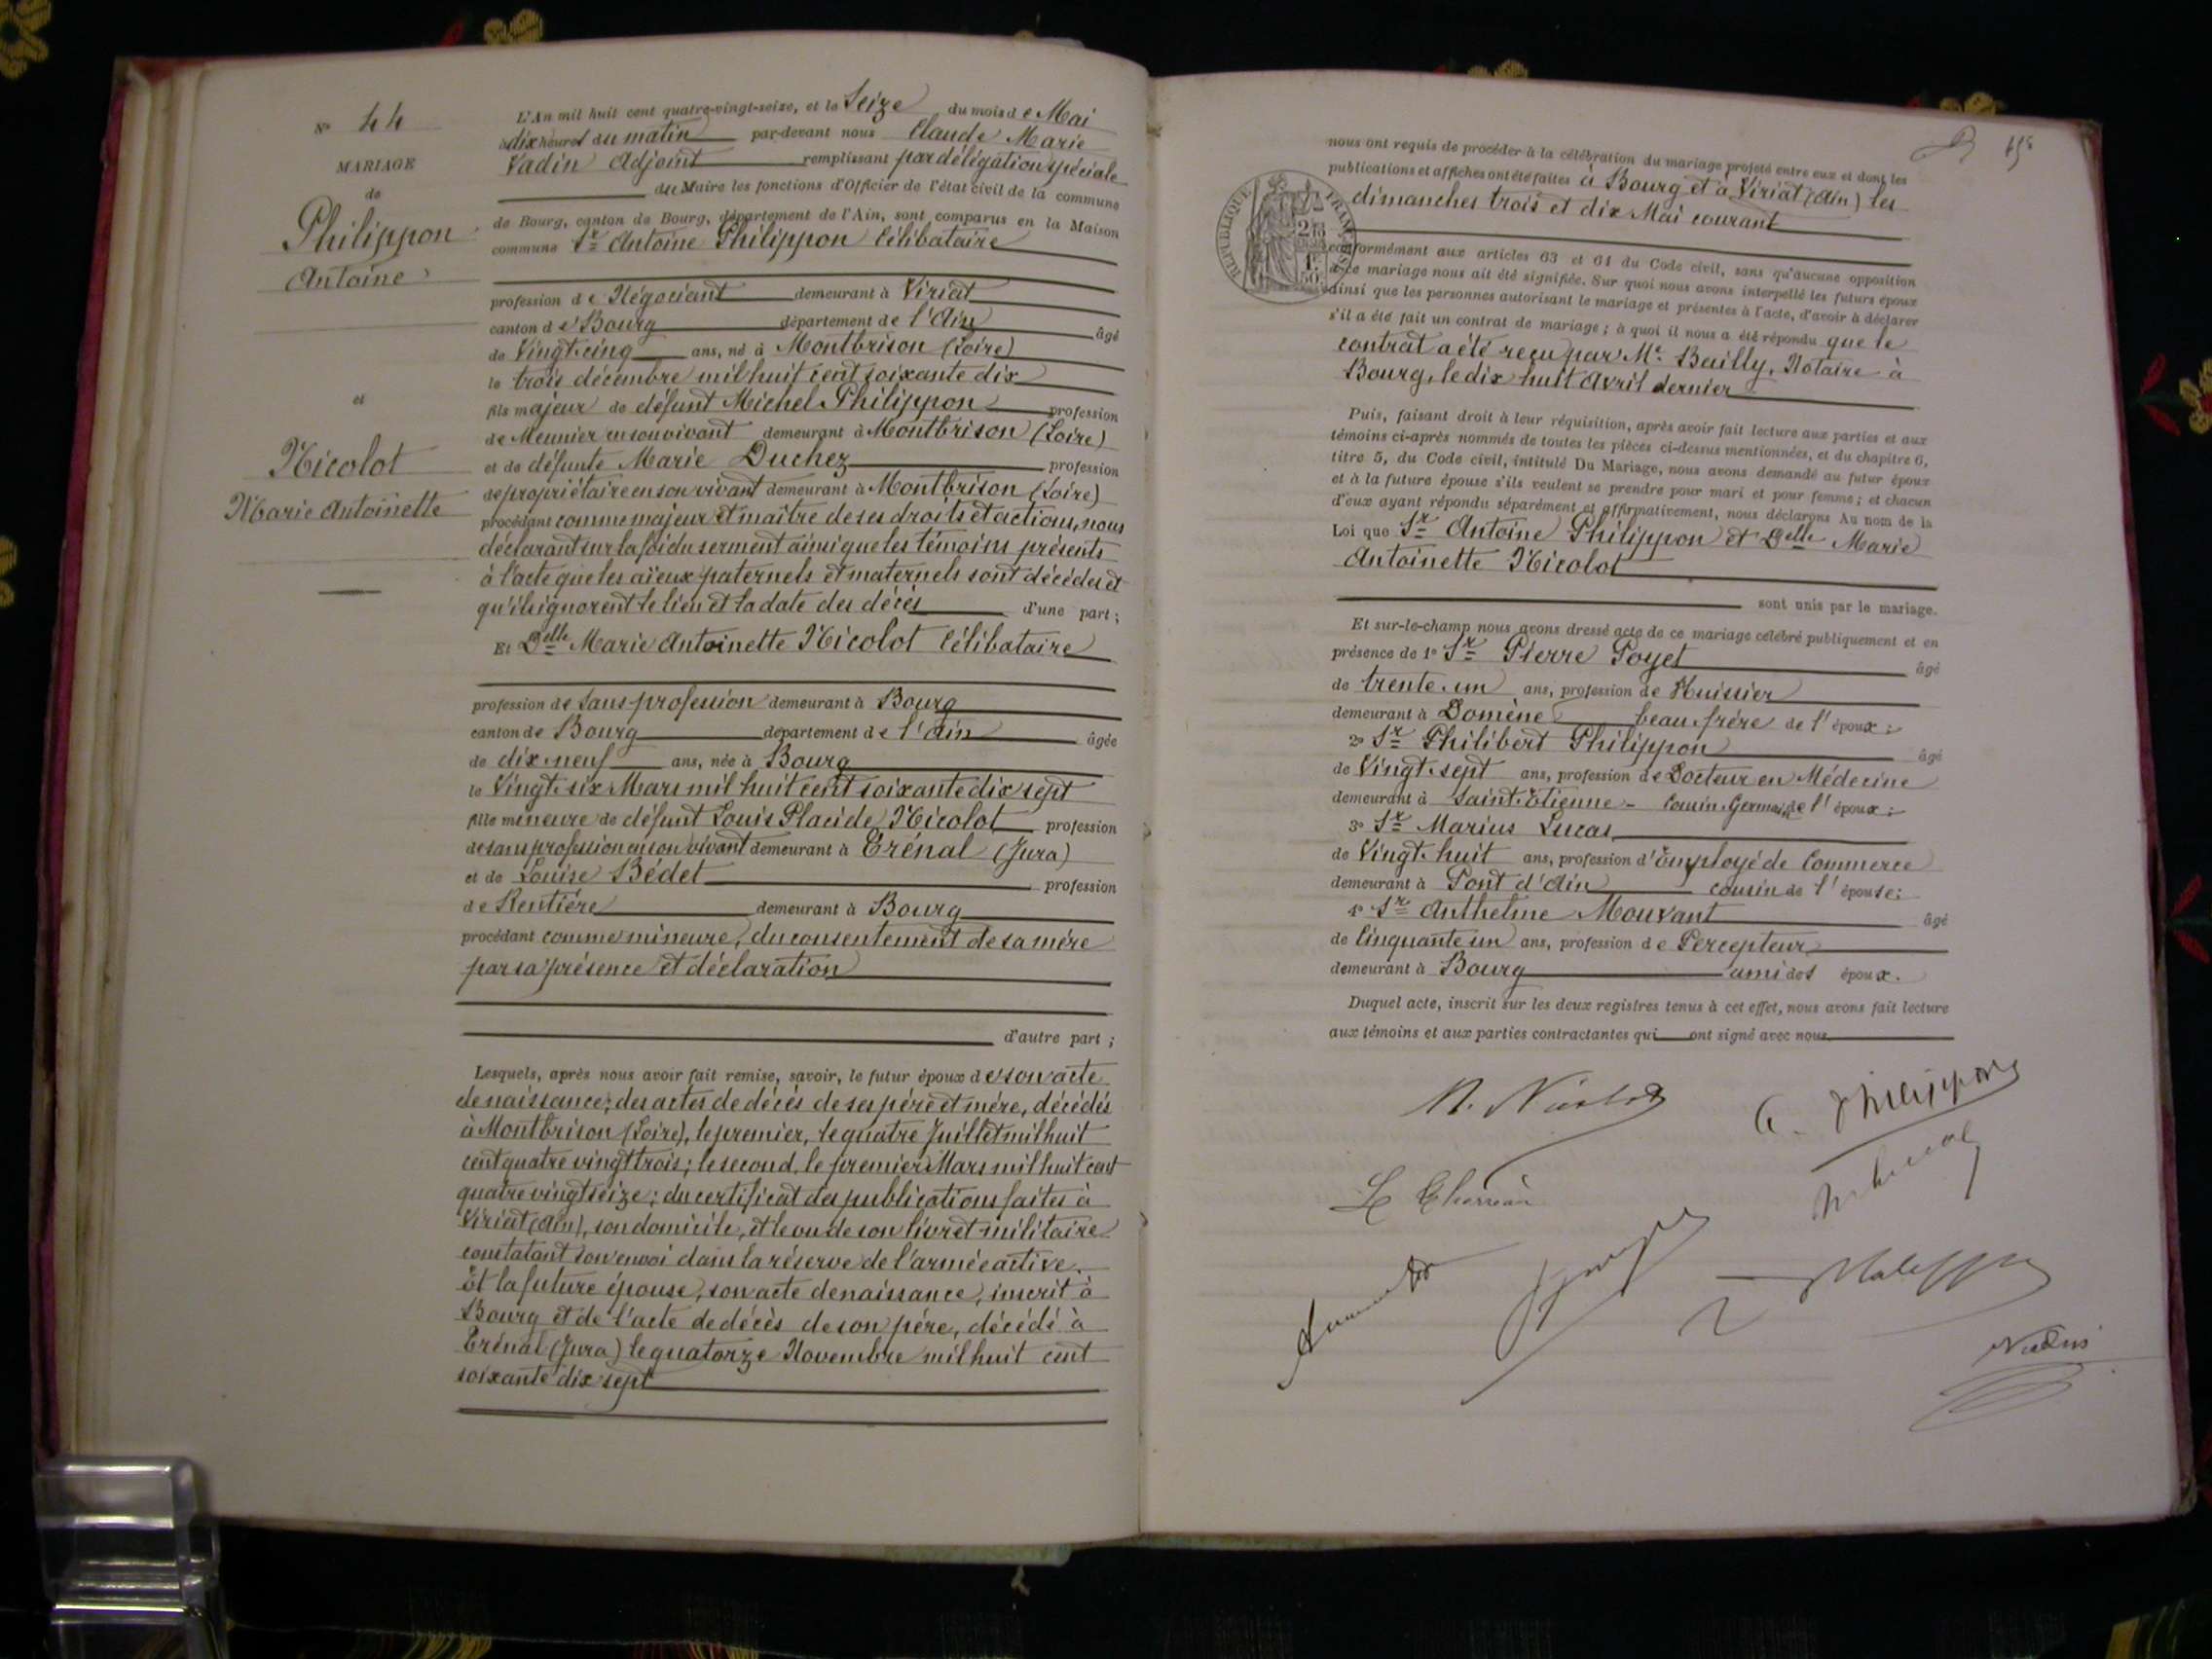 N° 44
MARIAGE
de
Philippon
Antoine
et
Nicolot
Marie Antoinette
L'An mil huit cent quatre-vingt-seize, et le Seize du mois de Mai
à dix heures du matin par-devant nous Claude Marie
Vadin Adjoint remplissant par délégation spéciale
du Maire les fonctions d'Officier de l'état civil de la commune
de Bourg, canton de Bourg, département de l'Ain, sont comparus en la Maison
commune Sr Antoine Philippon Célibataire
profession de Négociant demeurant à Viriat
canton de Bourg département de l'Ain âgé
de Vingt-cinq ans, né à Montbrison (Loire)
le trois décembre mil huit cent soixante dix
fils majeur de défunt Michel Philippon profession
de Meunier en son vivant demeurant à Montbrison (Loire)
et de défunte Marie Duchez profession
de propriétaire en son vivant demeurant à Montbrison (Loire)
procédant comme majeur et maître de ses droits et actions, nous
déclarant sur la foi du serment ainsi que les témoins présents
à l'acte que les aïeux paternels et maternels sont décédés et
qu'ils ignorent le lieu et la date des décès d'une part ;
Et Delle Marie Antoinette Nicolot Célibataire
profession de Sans profession demeurant à Bourg
canton de Bourg département de l'Ain âgée
de dix-neuf ans, née à Bourg
le Vingt-six Mars mil huit cent soixante dix sept
fille mineure de défunt Louis Placide Nicolot profession
de sans profession en son vivant demeurant à Trénal (Jura)
et de Louise Bédet profession
de Rentière demeurant à Bourg
procédant comme mineure, du consentement de sa mère
par sa présence et déclaration
d'autre part ;
Lesquels, après nous avoir fait remise, savoir, le futur époux de son acte
de naissance; des actes de décès de ses père et mère, décédés
à Montbrison (Loire), le premier, le quatre Juillet mil huit
cent quatre vingt trois ; le second, le premier Mars mil huit cent
quatre vingt seize ; du certificat des publications faites à
Viriat (Ain), son domicile, et le vu de son livret militaire
constatant son envoi dans la réserve de l'armée active.
Et la future épouse, son acte de naissance, inscrit à
Bourg et de l'acte de décès de son père, décédé à
Trénal (Jura) le quatorze Novembre mil huit cent
soixante dix sept
nous ont requis de procéder à la célébration du mariage projeté entre eux et dont les
publications et affiches ont été faites à Bourg et à Viriat (Ain) les
dimanches trois et dix Mai courant
RÉPUBLIQUE FRANÇAISE
conformément aux articles 63 et 64 du Code civil, sans qu'aucune opposition
à ce mariage nous ait été signifiée. Sur quoi nous avons interpellé les futurs époux
ainsi que les personnes autorisant le mariage et présentes à l'acte, d'avoir à déclarer
s'il a été fait un contrat de mariage ; à quoi il nous a été répondu que le
contrat a été reçu par Me Bailly, Notaire à
Bourg, le dix huit Avril dernier
Puis, faisant droit à leur réquisition, après avoir fait lecture aux parties et aux
témoins ci-après nommés de toutes les pièces ci-dessus mentionnées, et du chapitre 6,
titre 5, du Code civil, intitulé Du Mariage, nous avons demandé au futur époux
et à la future épouse s'ils veulent se prendre pour mari et pour femme ; et chacun
d'eux ayant répondu séparément et affirmativement, nous déclarons Au nom de la
Loi que Sr Antoine Philippon et Delle Marie
Antoinette Nicolot
sont unis par le mariage.
Et sur-le-champ nous avons dressé acte de ce mariage célébré publiquement et en
présence de 1° Sr Pierre Poyet âgé
de trente-un ans, profession de Huissier
demeurant à Domène beau-frère de l'époux :
2° Sr Philibert Philippon âgé
de Vingt-sept ans, profession de Docteur en Médecine
demeurant à Saint-Etienne - Cousin Germain de l'époux :
3° Sr Marius Lucas
de Vingt-huit ans, profession d'Employé de Commerce
demeurant à Pont d'Ain cousin de l'épouse :
4° Sr Anthelme Mouvant âgé
de Cinquante un ans, profession de Percepteur
demeurant à Bourg ami des époux.
Duquel acte, inscrit sur les deux registres tenus à cet effet, nous avons fait lecture
aux témoins et aux parties contractantes qui ont signé avec nous.
M. Nicolot
A. Philippon